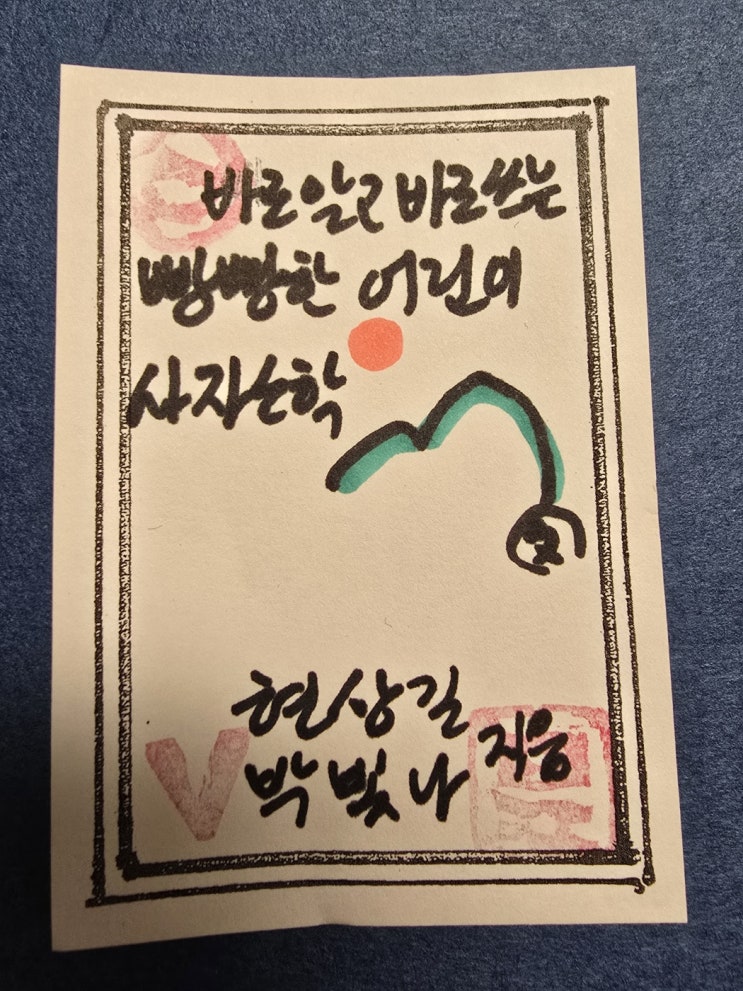 바로 알고 바로 쓰는
빵빵한 어린이
사자소학
현상길
박빛나 지음